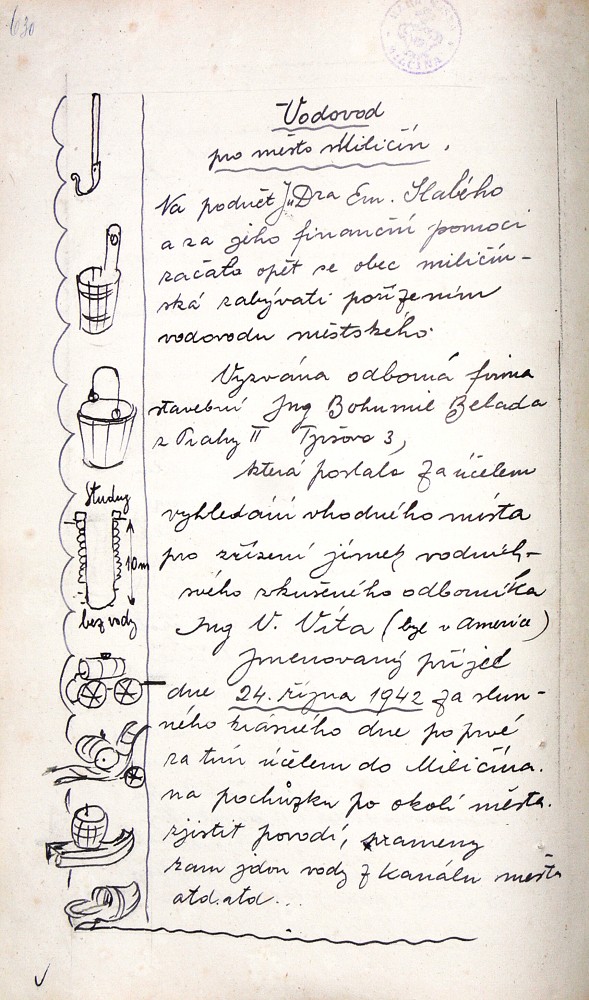 630
MILČINA
Vodovod
pro město Miličín.
Na podnět JuDra Em. Slabého
a za jeho finanční pomoci
začala opět se obec miličín-
ská zabývati pořízením
vodovodu městského.
Vyzvána odborná firma
stavební Ing Bohumil Belada
z Prahy II Tyršova 3,
která poslala za účelem
vyhledání vhodného místa
pro zřízení jímek vodních
svého zkušeného odborníka
Ing V. Víta (byl v Americe)
Jmenovaný přijel
dne 24. října 1942 za slun-
ného krásného dne poprvé
za tím účelem do Miličína.
na pochůzku po okolí města.
zjistit povodí, prameny
kam jdou vody z kanálu města
atd. atd...
Studny
10m
bez vody